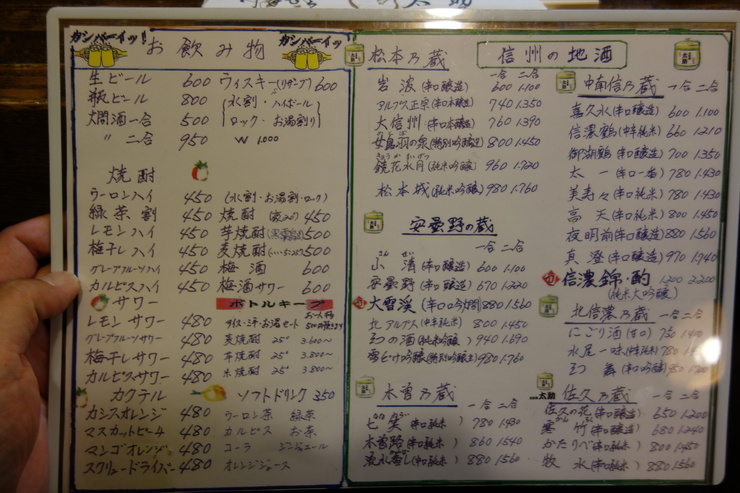 カンパーイッ! お飲み物 カンパーイッ!
生ビール 600
瓶ビール 800
燗酒一合 500
〃 二合 950
ウィスキー(リザーブ) 600
(水割・ハイボール
ロック・お湯割り)
W 1.000
焼酎
ウーロンハイ 450
緑茶割 450
レモンハイ 450
梅干しハイ 450
グレープフルーツハイ 450
カルピスハイ 450
(水割・お湯割・ロック)
焼酎 450
芋焼酎 500
麦焼酎 500
梅酒 600
梅酒サワー 600
サワー
レモンサワー 480
グレープフルーツサワー 480
梅干しサワー 480
カルピスサワー 480
ボトルキープ
アイス・津・お湯セート
25° 3.600~
芋焼酎 25° 3.800~
米焼酎 25° 3.800~
カクテル
カシスオレンジ 480
マスカットビーチ 480
マンゴオレンジ 480
スクリュードライバー 480
ソフトドリンク 350
ウーロン茶 緑茶
カルピス お茶
コーラ ジンジャエール
オレンジジュース
信州の地酒
松本乃蔵 一合 二合
岩波(辛口醸造) 600 1.100
アルプス正宗(辛口本醸造) 740 1.350
大信州(辛口本醸造) 760 1.390
女鳥羽の泉(特別吟醸造) 800 1.450
鏡花水月(純米吟醸) 960 1.720
松本城(純米吟醸) 980 1.760
安曇野の蔵
一合 二合
小清(辛口醸造) 600 1.100
安曇野(辛口醸造) 670 1.220
大雪渓(辛口吟醸) 880 1.560
北アルプス(中辛純米) 800 1.450
玉の酒(純米吟醸) 940 1.690
雪どけ吟醸(特別吟醸造) 980 1.760
木曽乃蔵
一合 二合
七笑(辛口純米) 780 1.430
木曽路(辛口純米) 860 1.540
(辛口純米) 880 1.560
中南信乃蔵 一合 二合
喜久水(辛口醸造) 600 1.100
信濃鶴(中辛純米) 660 1.210
御湖鶴(中口醸造) 700 1.350
太一(辛口一番) 780 1.430
美寿々(辛口純米) 780 1.430
高天(辛口純米) 800 1.450
夜明前(辛口醸造) 880 1.560
真澄(辛口吟醸) 970 1.740
信濃錦・酌 1.200 2.200
(純米大吟醸)
北信濃乃蔵 一合 二合
にごり酒(甘口) 750
水尾一味(中辛純米) 780
佐久乃蔵
一合 二合
佐久の花(辛口醸造) 650 1.200
寒竹(辛口醸造) 680 1.240
かたりべ(辛口純米) 800 1.450
牧水(辛口純米) 880 1.560